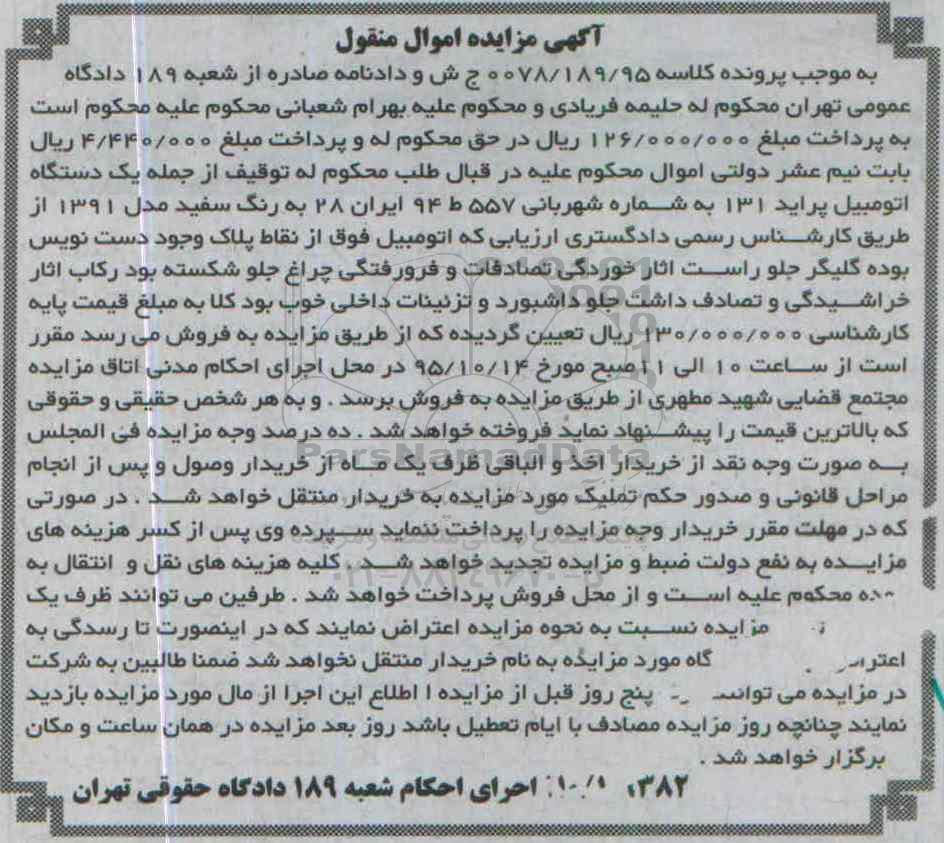 آگهی مزایده اموال منقول
به موجب پرونده کلاسه ۰۰۷۸/۱۸۹/۹۵ ج ش و دادنامه صادره از شعبه ۱۸۹ دادگاه
عمومی تهران محکوم له حلیمه فریادی و محکوم علیه بهرام شعبانی محکوم علیه محکوم است
به پرداخت مبلغ ۱۲۶/۰۰۰/۰۰۰ ریال در حق محکوم له و پرداخت مبلغ ۴/۴۴۰/۰۰۰ ریال
بابت نیم عشر دولتی اموال محکوم علیه در قبال طلب محکوم له توقیف از جمله یک دستگاه
اتومبیل پراید ۱۳۱ به شماره شهربانی ۵۵۷ ط ۹۴ ایران ۲۸ به رنگ سفید مدل ۱۳۹۱ از
طریق کارشناس رسمی دادگستری ارزیابی که اتومبیل فوق از نقاط پلاک وجود دست نویس
بوده گلیگر جلو راست اثار خوردگی تصادفات و فرورفتگی چراغ جلو شکسته بود رکاب اثار
خراشیدگی و تصادف داشت جلو داشبورد و تزئینات داخلی خوب بود کلا به مبلغ قیمت پایه
کارشناسی ۱۳۰/۰۰۰/۰۰۰ ریال تعیین گردیده که از طریق مزایده به فروش می رسد مقرر
است از ساعت ۱۰ الی ۱۱ صبح مورخ ۹۵/۱۰/۱۴ در محل اجرای احکام مدنی اتاق مزایده
مجتمع قضایی شهید مطهری از طریق مزایده به فروش برسد . و به هر شخص حقیقی و حقوقی
که بالاترین قیمت را پیشنهاد نماید فروخته خواهد شد . ده درصد وجه مزایده فی المجلس
به صورت وجه نقد از خریدار اخذ و الباقی ظرف یک ماه از خریدار وصول و پس از انجام
مراحل قانونی و صدور حکم تملیک مورد مزایده به خریدار منتقل خواهد شد . در صورتی
که در مهلت مقرر خریدار وجه مزایده را پرداخت ننماید سپرده وی پس از کسر هزینه های
مزایده به نفع دولت ضبط و مزایده تجدید خواهد شد . کلیه هزینه های نقل و انتقال به
محکوم علیه است و از محل فروش پرداخت خواهد شد . طرفین می توانند ظرف یک
مزایده نسبت به نحوه مزایده اعتراض نمایند که در اینصورت تا رسدگی به
گاه مورد مزایده به نام خریدار منتقل نخواهد شد ضمنا طالبین به شرکت
در مزایده می پنج روز قبل از مزایده ا اطلاع این اجرا از مال مورد مزایده بازدید
نمایند چنانچه روز مزایده مصادف با ایام تعطیل باشد روز بعد مزایده در همان ساعت و مکان
برگزار خواهد شد .
اجرای احکام شعبه ۱۸۹ دادگاه حقوقی تهران
ParsNamadData
۰۲۱-۸۸۳۴۹۶۷۰-۵